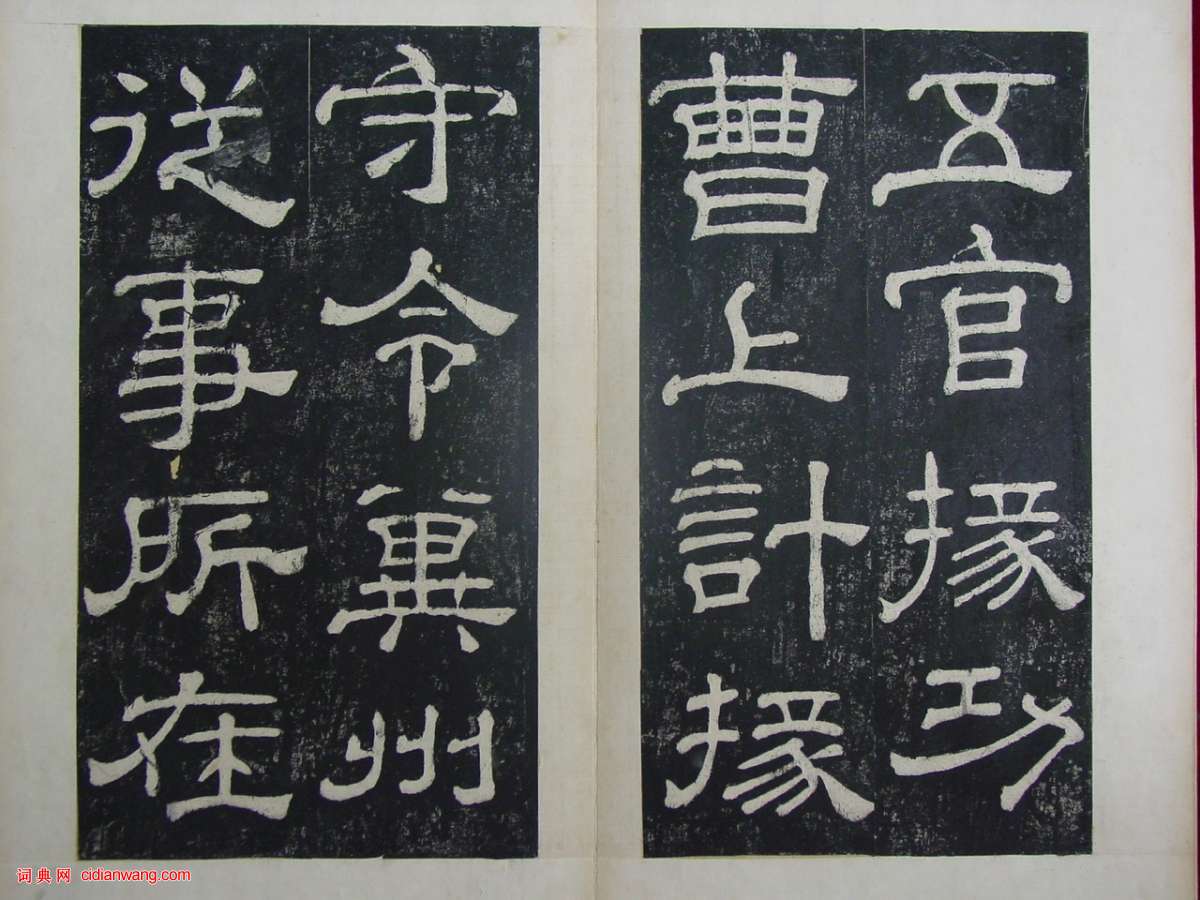 五官掾功
曹上計掾
守令冀州
従事所在
词典网 cidianwang.com